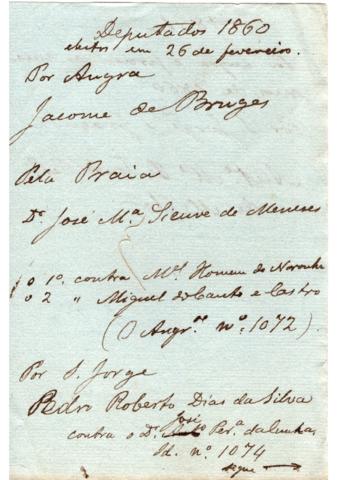 Deputados 1860
eleitos em 26 de fevereiro.
Por Angra
Jacome de Bruges
Pela Praia
Dr. José Mª Sieuve de Meneses
o 1º. contra Mel. Homem de Noronha
o 2 " Miguel do Canto e Castro
(O Angr.se nº. 1072).
Por S. Jorge
Pedro Roberto Dias da Silva
José
contra o Dr. Perª. da Cunha,
Id. nº. 1074
segue